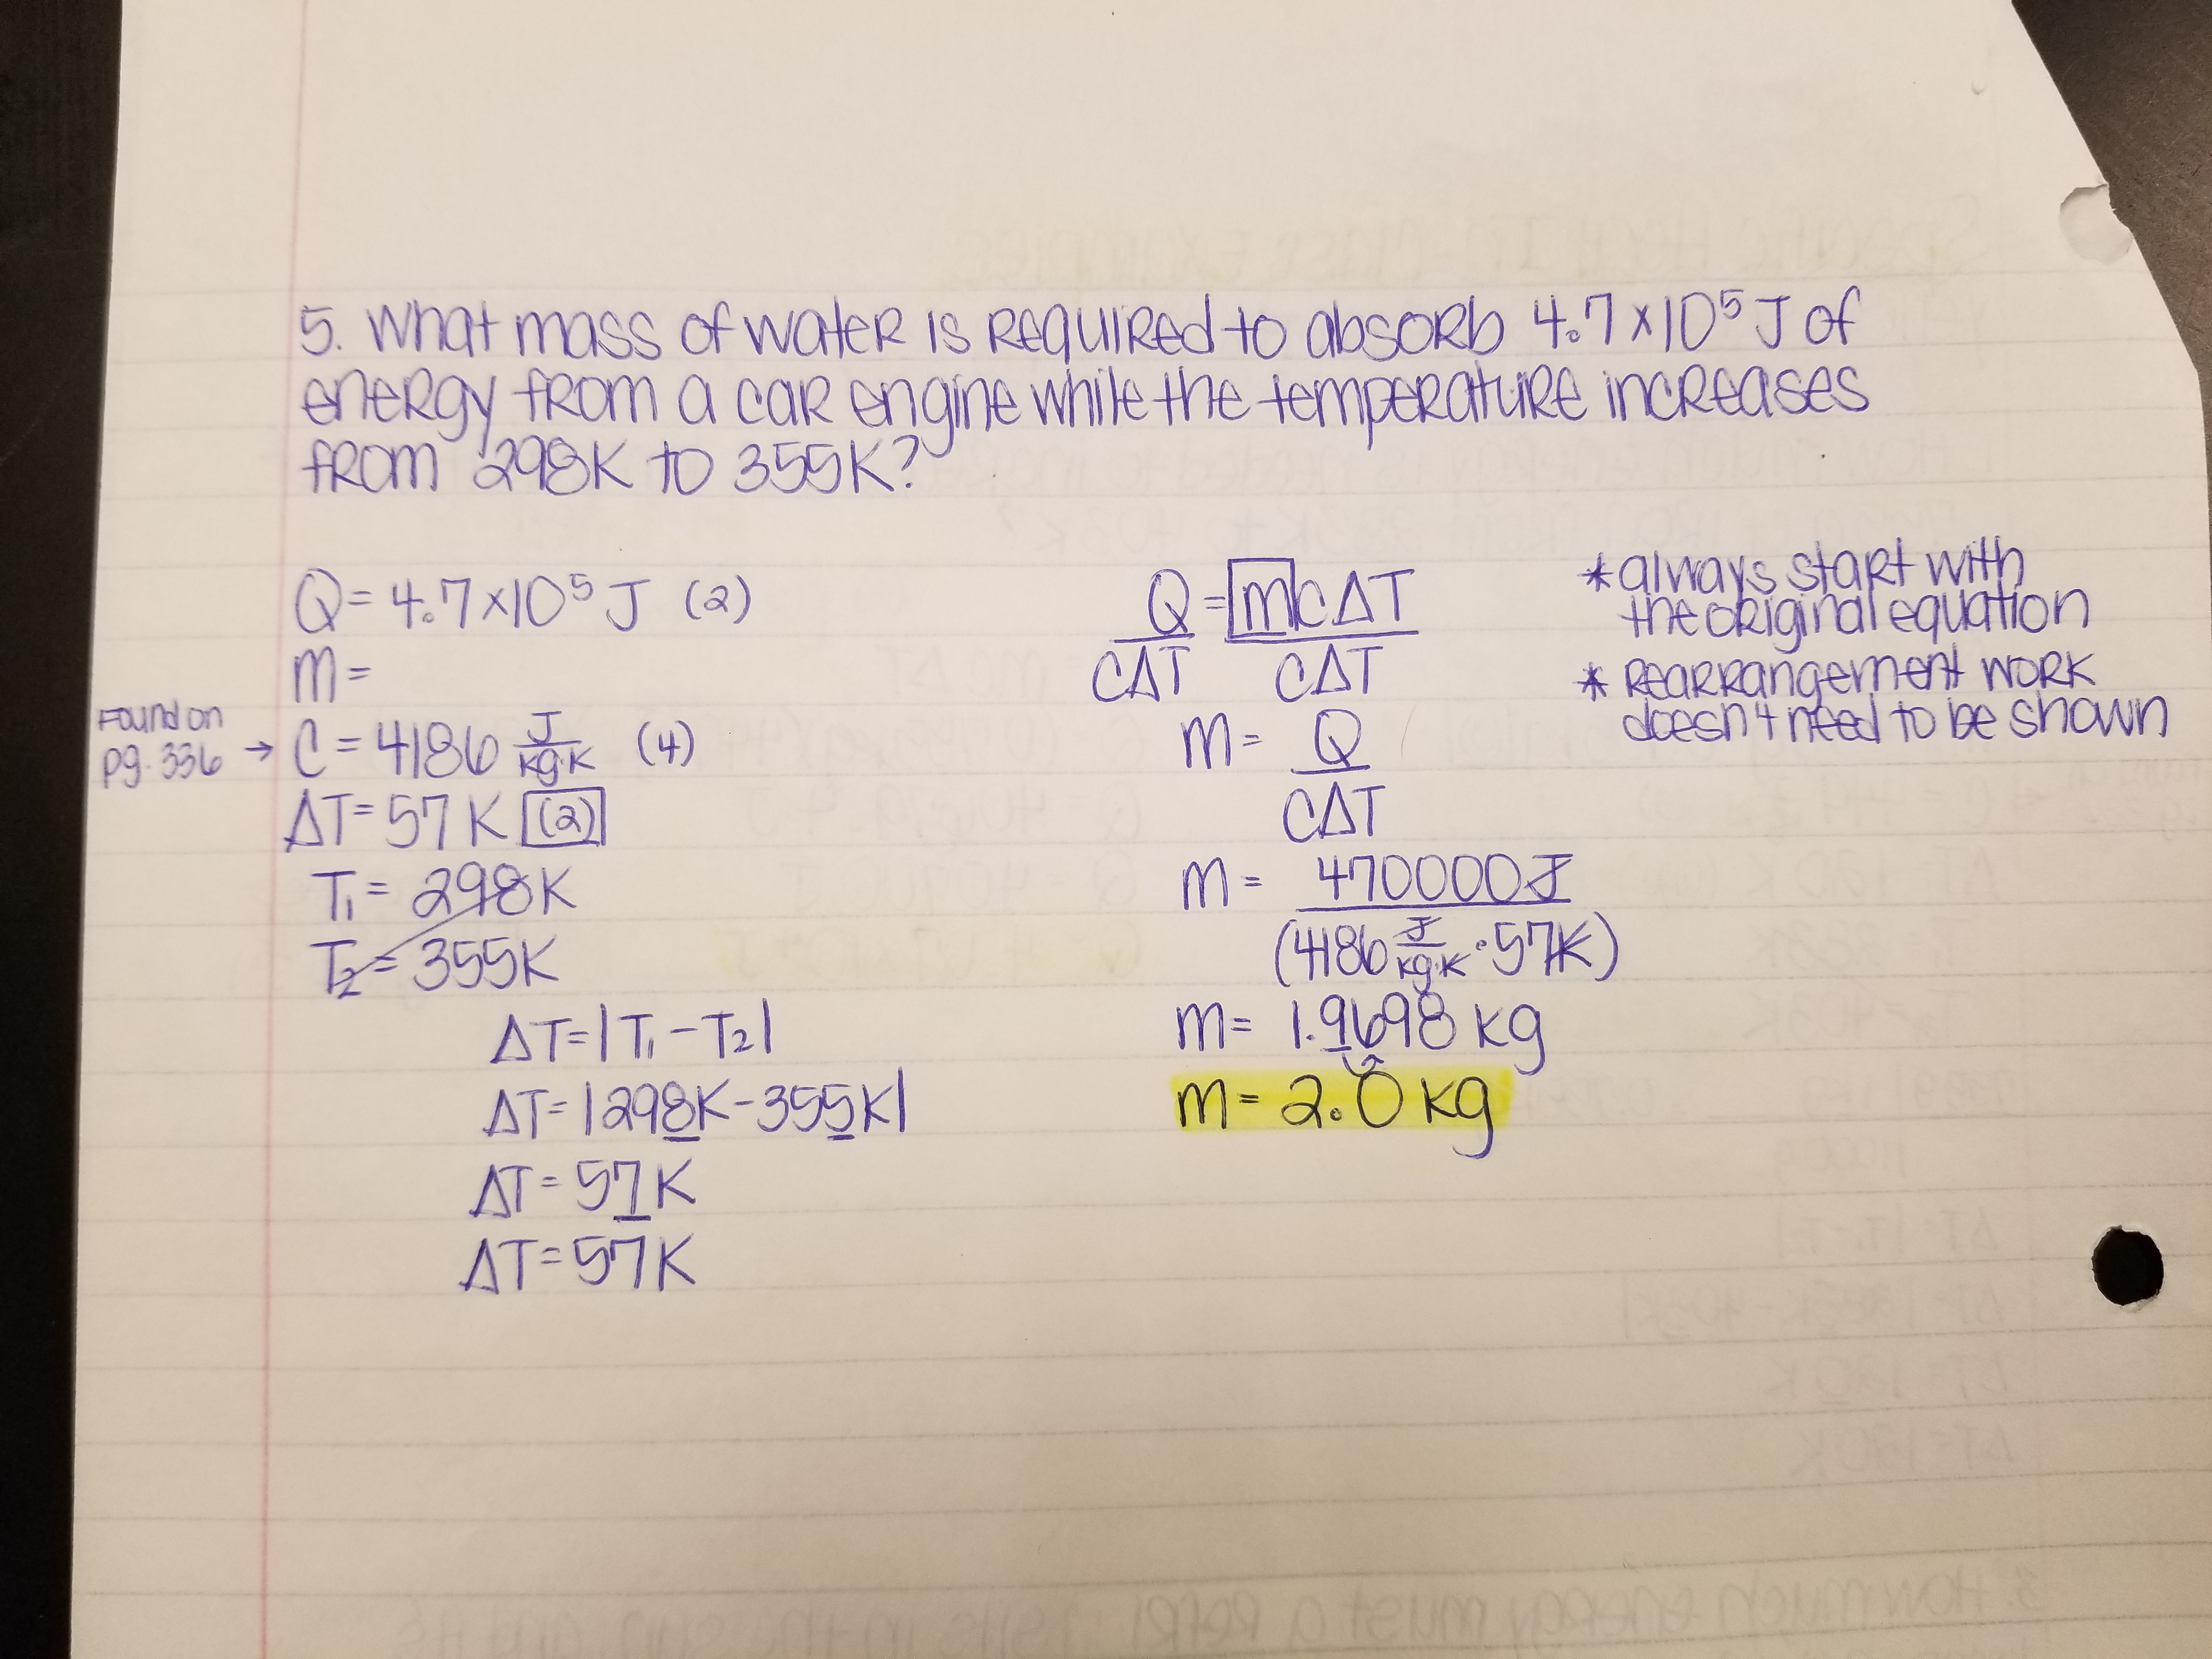 5. What mass of water is required to absorb 4.7 x 10⁵ J of
energy from a car engine while the temperature increases
from 298K to 355K?
Q = 4.7 x 10⁵ J (2)
m =
Found on
pg. 336 → C = 4186 J/kg·K (4)
ΔT = 57 K (2)
T₁ = 298K
T₂ = 355K
ΔT = |T₁ - T₂|
ΔT = |298K - 355K|
ΔT = 57K
ΔT = 57K
Q/CΔT = mCΔT/CΔT
m = Q/CΔT
m = 470000J/(4186 J/kg·K · 57K)
m = 1.9698 kg
m = 2.0 kg
* always start with
the original equation
* rearrangement work
doesn't need to be shown